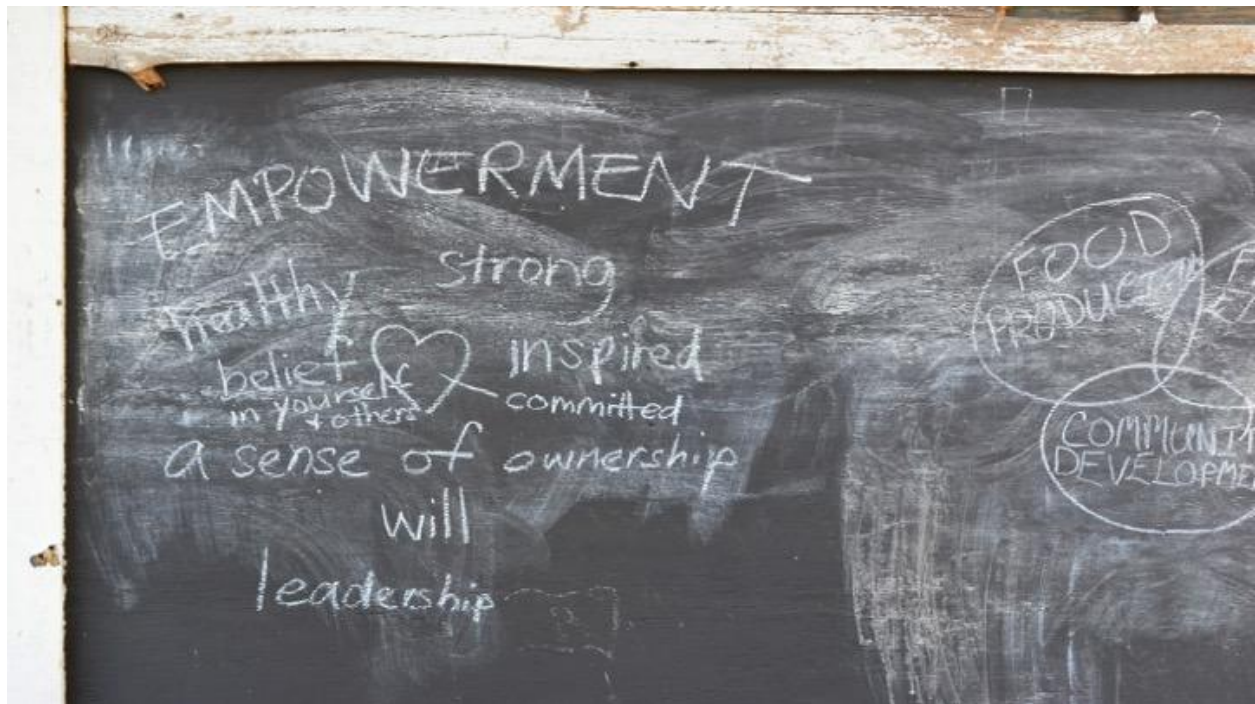 EMPOWERMENT
strong
healthy
inspired
belief
in yourself
& others
committed
a sense of ownership
will
leadership
FOOD
PRODUCTION
COMMUNIT
DEVELOPME